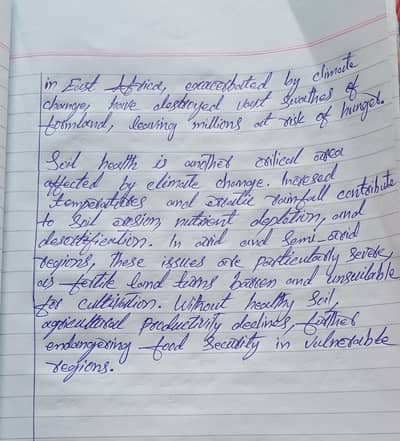 in East Africa, exacerbated by climate
change, have destroyed vast swathes of
farmland, leaving millions at risk of hunger.
Soil health is another critical area
affected by climate change. Incresed
temperatures and erratic rainfall contribute
to soil erosion, nutrient depletion, and
desertification. In arid and Semi-arid
regions, these issues are particularly severe,
as fertile land turns barren and unsuilable
for cultivation. Without healthy Soil,
agricultural productivity declines, further
endangering food Security in vulnerable
regions.